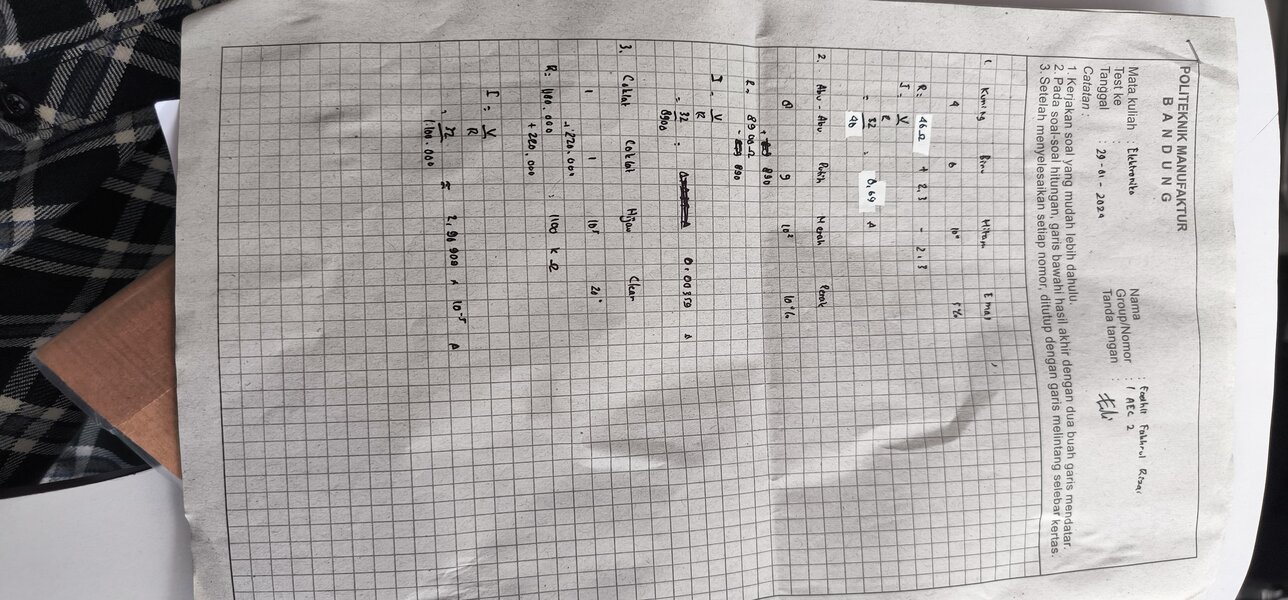 POLITEKNIK MANUFAKTUR
BANDUNG
Mata kuliah : Elektronika
Test ke :
Tanggal : 29-01-2024
Nama :
Group/Nomor : 1 AEC 2
Tanda tangan :
Catatan :
1. Kerjakan soal yang mudah lebih dahulu.
2. Pada soal-soal hitungan, garis bawahi hasil akhir dengan dua buah garis mendatar.
3. Setelah menyelesaikan setiap nomor, ditutup dengan garis melintang selebar kertas.
1. Kuning Biru Hitam Emas
4 6 10⁰ 5%
R: 46 Ω + 2,3 - 2,3
I = V/R
= 32/46 = 0,69 A
2. Abu-Abu Putih Merah Perak
8 9 10² 10%
+ 890
R = 8900 Ω
- 890
I = V/R
= 32/8900 = 0.00359 A
3. Coklat Coklat Hijau Clear
1 1 10⁵ 20%
+ 220.000
R: 1100.000 = 1100 k Ω
+ 220.000
I = V/R
= 32/1.100.000 = 2,90909 × 10⁻⁵ A